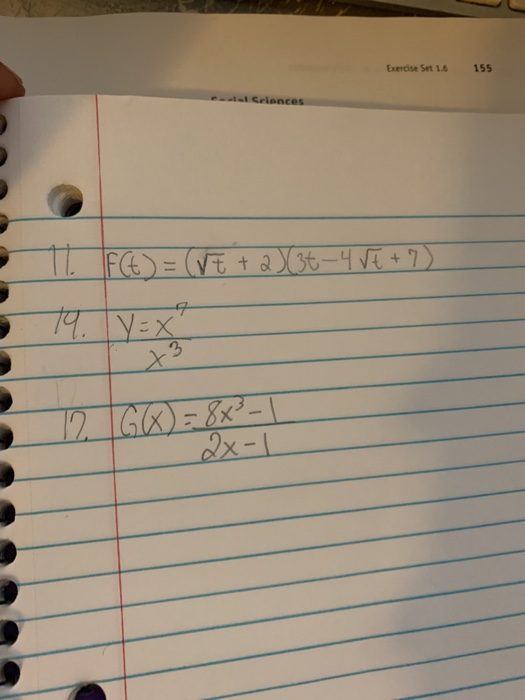 Exercise Set 1.6 155
Social Sciences
11. F(t) = (√t + 2)(3t - 4√t + 7)
14. y = x^7
x^3
17. G(x) = 8x^3 - 1
2x - 1